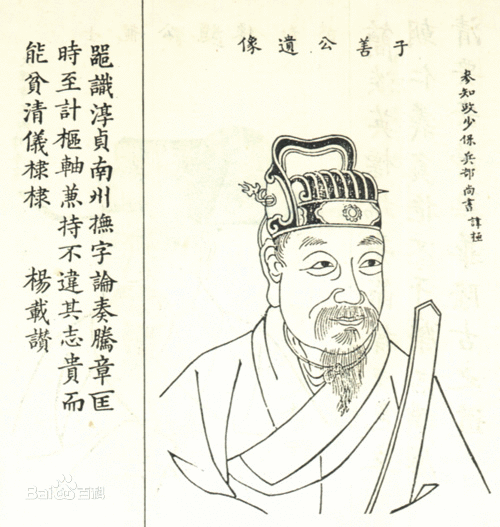 參知政少保兵部尚書諱
子善公遺像
噐識淳貞南州撫字論奏騰章匡
時至計樞軸兼持不違其志貴而
能貧清儀棣棣 楊載讚
Bai百科